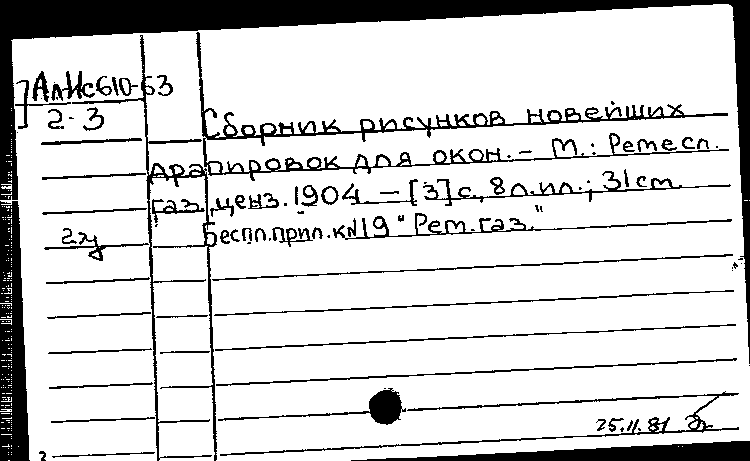 АлИс610-63
2-3
Сборник рисунков новейших
драпировок для окон. - М.: Ремесл.
газ., ценз. 1904. - [3] с., 8 л. ил.; 31 см.
Беспл. прил. к №19 "Рем. газ."
25.11.81